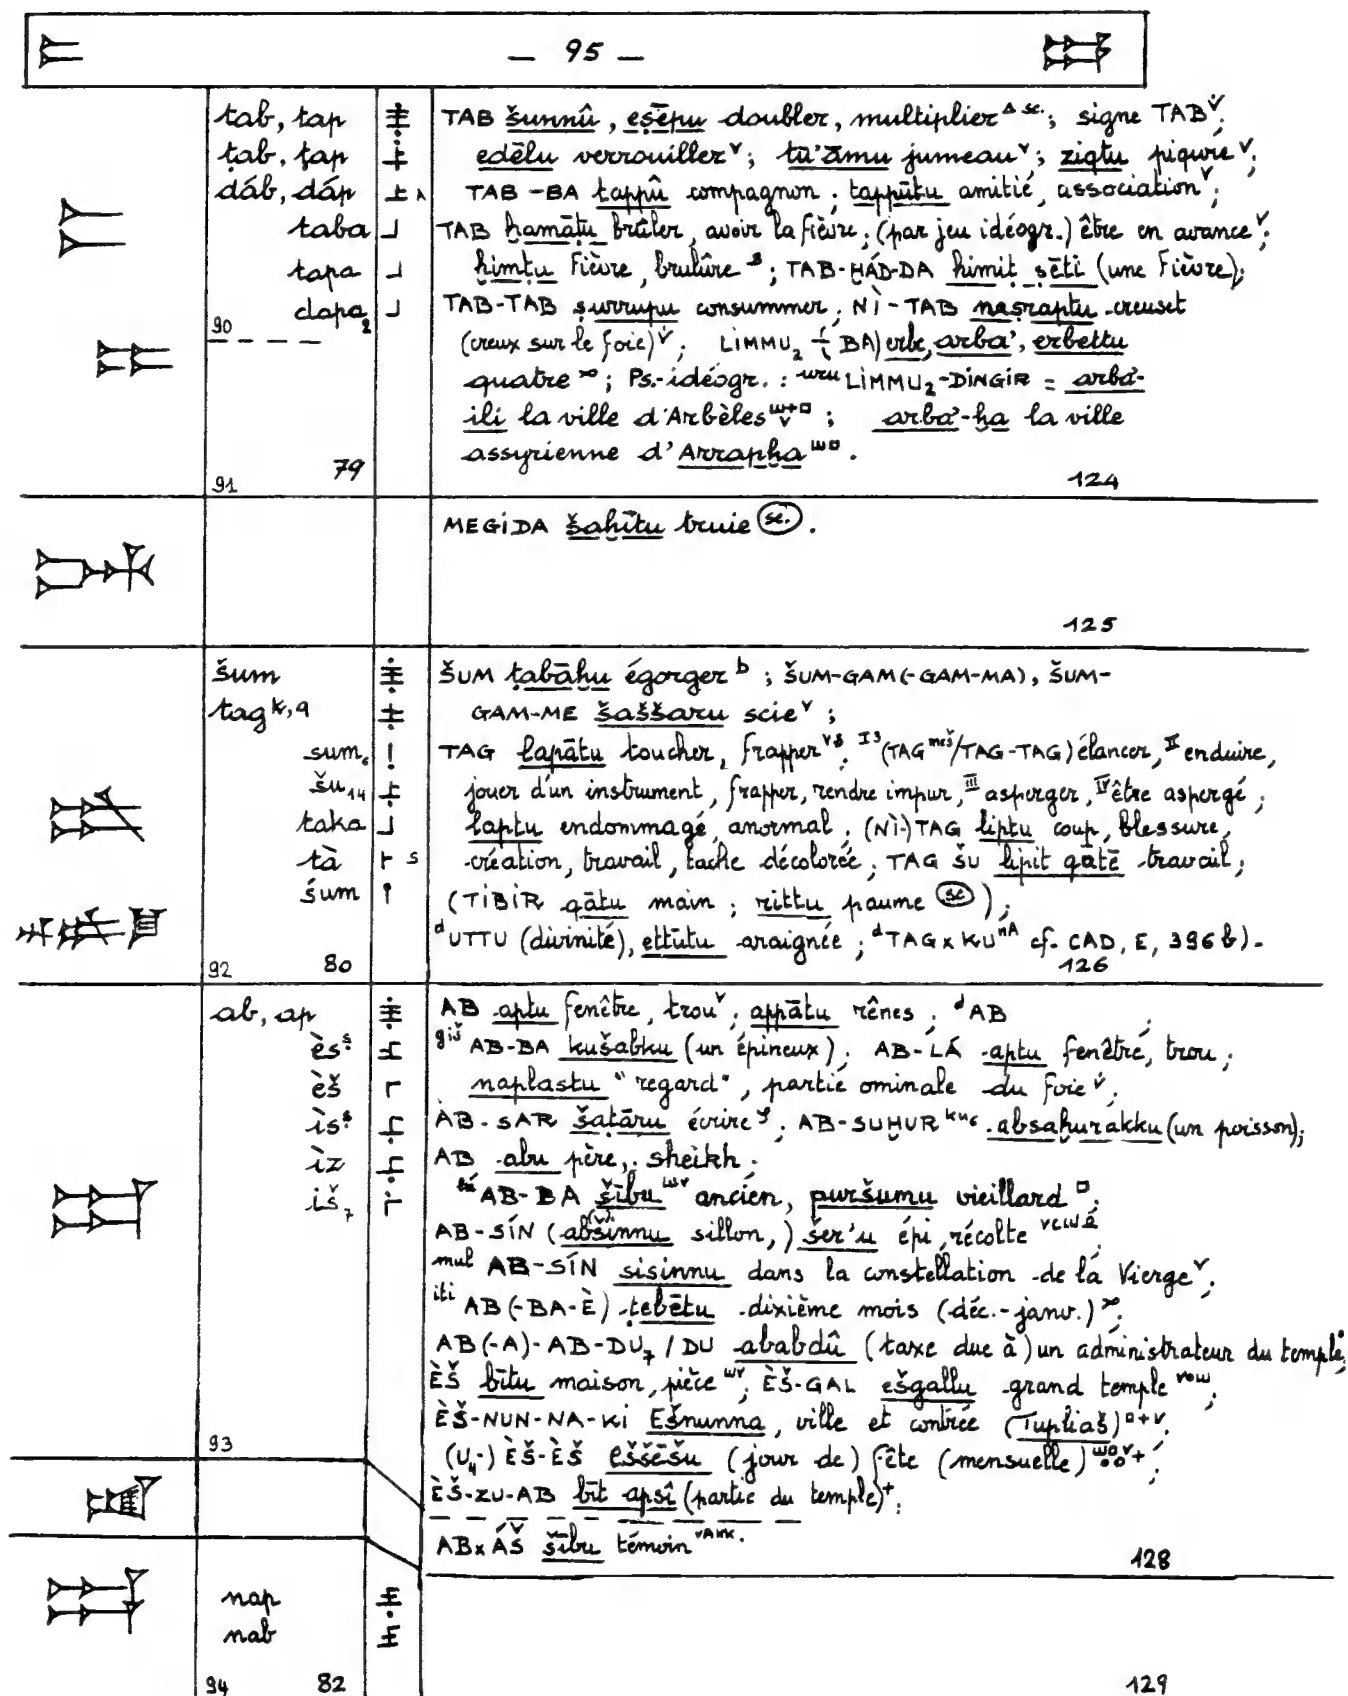 — 95 —
tab, tap TAB šunnû, eṣēpu doubler, multiplier ; signe TAB ;
ṭab, ṭap edēlu verrouiller ; tū'āmu jumeau ; ziqtu piqure ;
dáb, dáp TAB-BA tappû compagnon ; tappūtu amitié, association ;
taba TAB ḫamāṭu brûler, avoir la fièvre ; (par jeu idéogr.) être en avance ;
tapa ḫimṭu Fièvre, brulûre ; TAB-ḪÁD-DA ḫimiṭ ṣēti (une Fièvre) ;
dapa₂ TAB-TAB ṣurrupu consummer ; NÌ-TAB naṣraptu creuset
90 (creux sur le foie) ; LÍMMU₂ (BA) erbe, arba', erbettu
quatre ; Ps.-idéogr. : uru LÍMMU₂-DINGIR = arba-
ili la ville d'Arbèles ; arba'-ḫa la ville
assyrienne d'Arrapḫa .
91 79 124
MEGIDA šaḫītu truie sc. .
125
šum ŠUM ṭabāḫu égorger b ; ŠUM-GAM(-GAM-MA), ŠUM-
tag k, q GAM-ME šaššaru scie v ;
sum₆ TAG lapātu toucher, frapper ; I3 (TAG meš/TAG-TAG) élancer, II enduire,
šu₁₄ jouer d'un instrument, frapper, rendre impur, III asperger, IV être aspergé ;
taka laptu endommagé, anormal ; (NÌ-)TAG liptu coup, blessure,
tà s création, travail, tache décolorée ; TAG ŠU lipit qātē travail ;
śum (TIBIR qātu main ; rittu paume sc) ;
d UTTU (divinité), ettūtu araignée ; d TAG x KU nA cf. CAD, E, 396 b) .
92 80 126
ab, ap AB aptu fenêtre, trou v ; appātu rênes ; d AB ;
ès giš AB-BA kušabku (un épineux) ; AB-LÁ aptu fenêtre, trou ;
èš naplastu "regard", partie ominale du foie v ;
ìs AB-SAR šaṭāru écrire ; AB-SUḪUR ku₆ absaḫurakku (un poisson) ;
ìz AB abu père, sheikh ;
iš₇ lú AB-BA šību ancien, puršumu vieillard ;
AB-SÍN (abšinnu sillon,) šer'u épi, récolte
mul AB-SÍN sisinnu dans la constellation de la Vierge v ;
iti AB(-BA-È) ṭebētu dixième mois (déc.-janv.) ;
AB(-A)-AB-DU₇ / DU ababdû (taxe due à) un administrateur du temple ;
ÈŠ bītu maison, pièce ; ÈŠ-GAL ešgallu grand temple ;
ÈŠ-NUN-NA-KI Ešnunna, ville et contrée (Tupliaš) ;
93 (U₄-) ÈŠ-ÈŠ eššēšu (jour de) fête (mensuelle) ;
ÈŠ-ZU-AB bīt apsî (partie du temple) + ;
ABxÁŠ šību témoin .
128
nap
nab
94 82 129